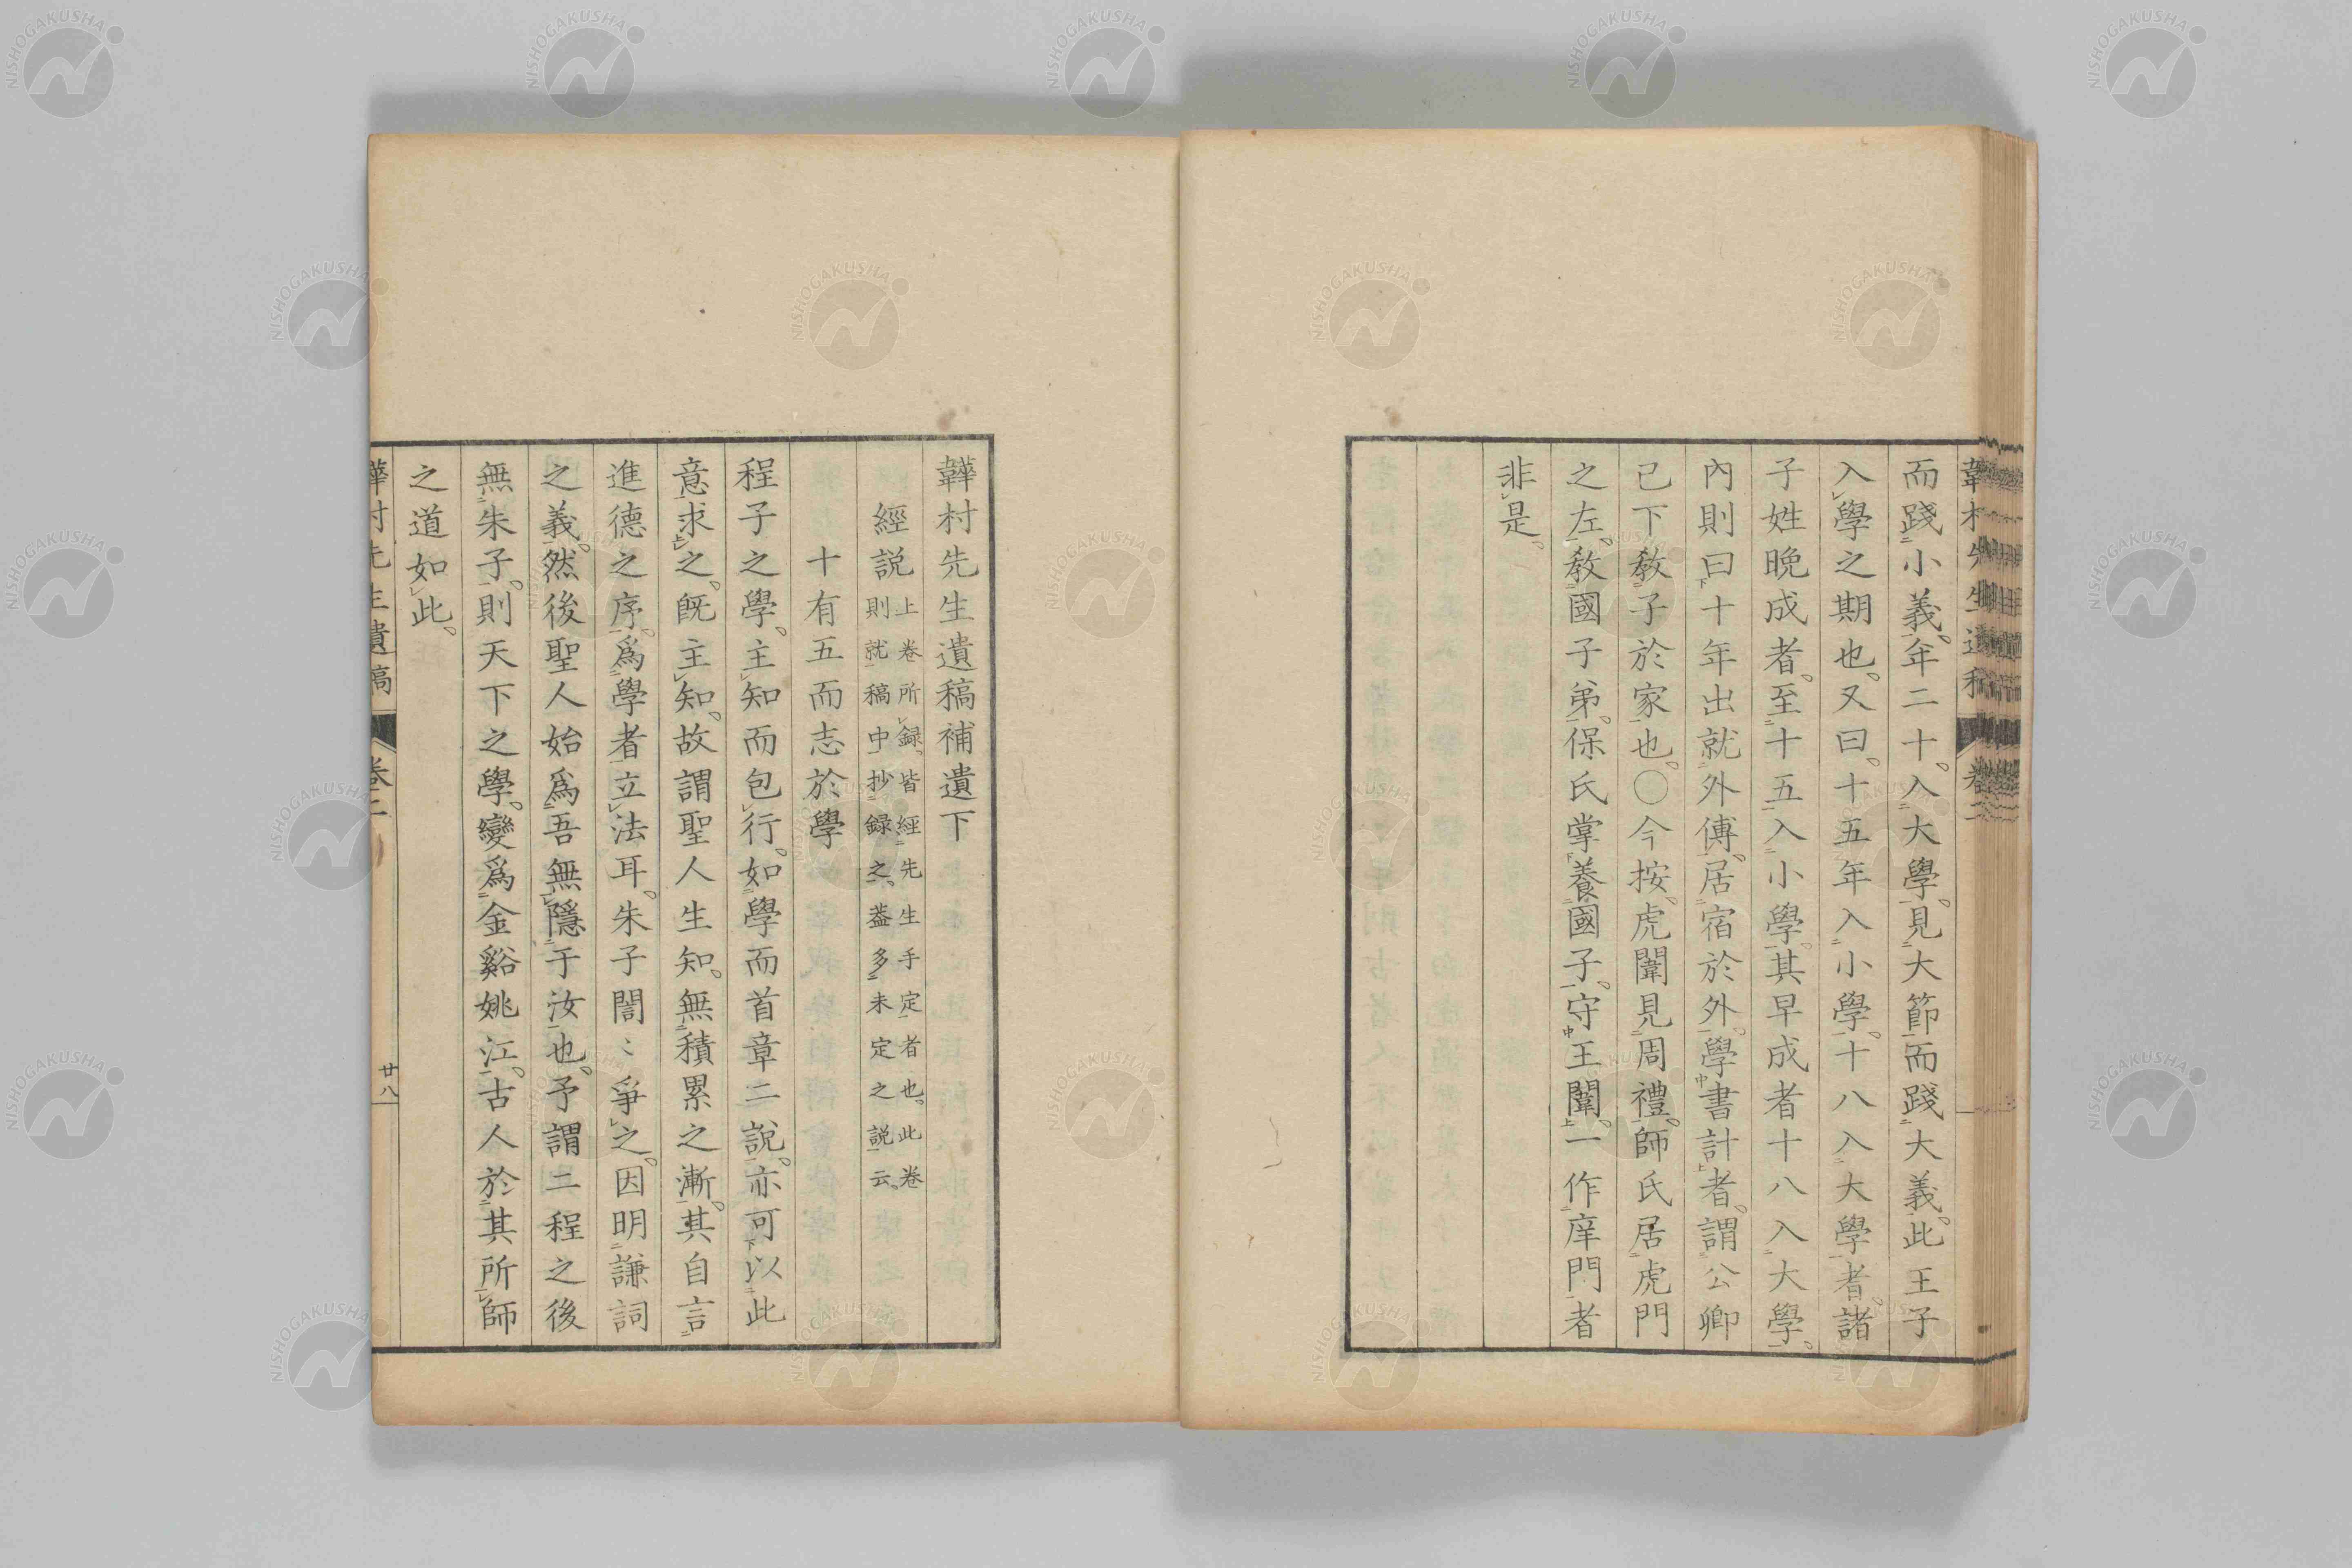 而踐小義。年二十。入大學。見大節而踐大義。此王子
入學之期也。又曰。十五年入小學。十八入大學者。諸
子姓晚成者。至十五入小學。其早成者十八入大學。
內則曰十年出就外傅。居宿於外。學書計者。謂公卿
已下敎子於家也。○今按。虎闈見周禮。師氏居虎門
之左。敎國子弟。保氏掌養國子。守王闈。一作庠門者
非是。
韡村先生遺稿補遺下
經説
上卷所録。皆經先生手定者也。此卷
則就稿中抄録之。葢多未定之説云。
十有五而志於學
程子之學。主知而包行。如學而首章二説。亦可以此
意求之。旣主知。故謂聖人生知。無積累之漸。其自言
進德之序。爲學者立法耳。朱子誾〻爭之。因明謙詞
之義。然後聖人始爲吾無隱于汝也。予謂二程之後
無朱子。則天下之學。變爲金谿姚江。古人於其所師
之道如此。
韡村先生遺稿
卷二
廿八
NISHOGAKUSHA